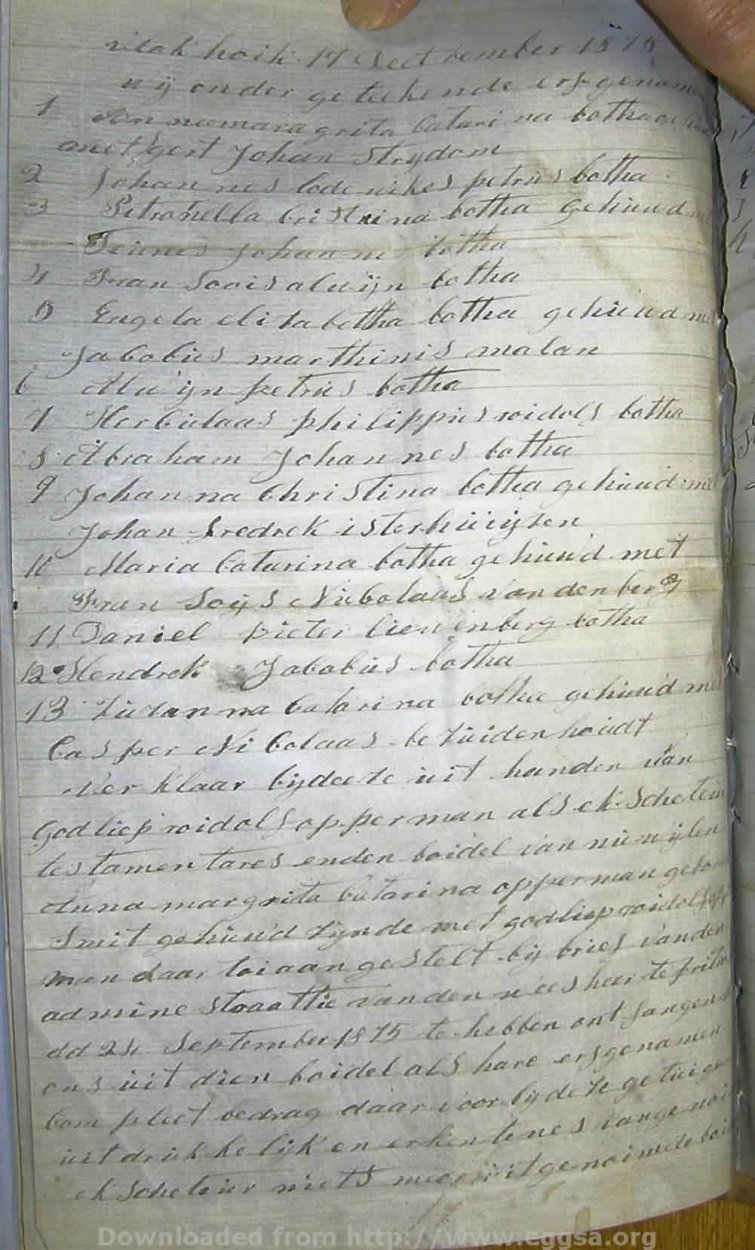 vlak hoik 17 Sectbember 1875
wij onder geteekende erfgenamen
1 Annumaragrita Catari na botha
met gert Johan Strydom
2 Johannes lode wikes petrus botha
3 Petronella Cristina botha gehuud
Teunes Johannes botha
4 Fran Soois aluijn botha
5 Engela elisabettha botha gehuud met
Jabobus marthinis malan
6 Alu'ijn petrus botha
7 Herbulaas philippus roidolf botha
8 Abraham Johannes botha
9 Johan na Christina botha gehuud met
Johan fredrek isterhuijsen
10 Maria Catarina botha gehuud met
Fran Soijs Nicbolaas van den berg
11 Daniel pieter lieuwenberg botha
12 Hendrek Jabobus botha
13 Zuzanna Catarina botha gehuud met
Casper Ni Colaas bezuidenhoudt
verklaar bijdeeze uit handen van
Godliep roidolf opperman als ekScheteur
testamentares enden boidel van nu wijlen
Anna margrita Catarina opperman gebo
Smit gehuud zijnde met godliep roidolf
man daar toi aan gestelt bij brief vanden
admine straattie vanden weesheer te
dd 24 September 1875 te hebben ontfangen
ons uit dien boidel als hare erfgenamen
Com pleet bedrag daar voor bij deze
uitdrukkelijk en erkentenes
ekScheteur niets meer uit genoimde boi
Downloaded from http://www.eggsa.org